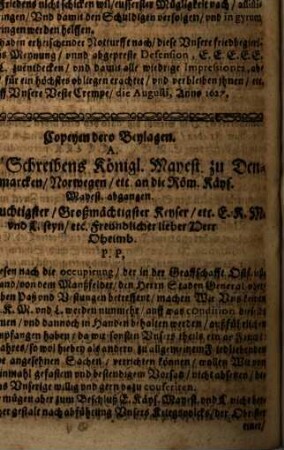 friedens nicht schicken will / eusserster Mügligkeit nach /
Vnd damit den Schüldigen verfolgen / vnd in gyrum
bringen werden helffen.
haben erheischender Notturfft nach / diese Vnsere friedbegirige
Meynung / vnnd abgepreste Defension, E. E. E. E. E.
L. zuentdecken / vnd damit alle widrige Impressiones, abe
für ein höchstes obliegen erachtet / vnd verbleiben jhnen / etc.
auff Vnsere Veste Crempe / die Augusti, Anno 1627.
Copeyen dero Beylagen.
A.
Schreibens Königl. Mayest. zu Den-
marcken / Norwegen / etc. an die Röm. Käys.
Mayest. abgangen
uchtigster / Großmächtigster Keyser / etc. E. K. M.
vnd L. seyn / etc. Freundlicher lieber Herr
Oheimb.
P. P,
esen nach die occupirung / der in der Graffschafft Ost
and / von dem Manßfelder / den Herrn Staden General
ben Paß vnd Vestungen betreffent / machen Wir Vns keinen
K. M. vnd L. werden nunmehr / auff was condition diese
nen / vnd dannoch in Handen behalten werden / außführlichen
mpfangen haben / da wir sonsten Vnsers theils
ahrtes / so wol hieber als andern zu allgemeinem Friede
e angesehenen Sachen / verrichten können / wollen Wir von
einmahl gefastem vnd bestendigem Vorsatz / nicht absetzen /
as Vnserige willig vnd gern dazu conferiren.
mügen aber zum Beschluß E. Käys. Mayest. vnd L. nicht
er gestalt nach abführung Vnsers Kriegsvolcks / der Obrister
einer /